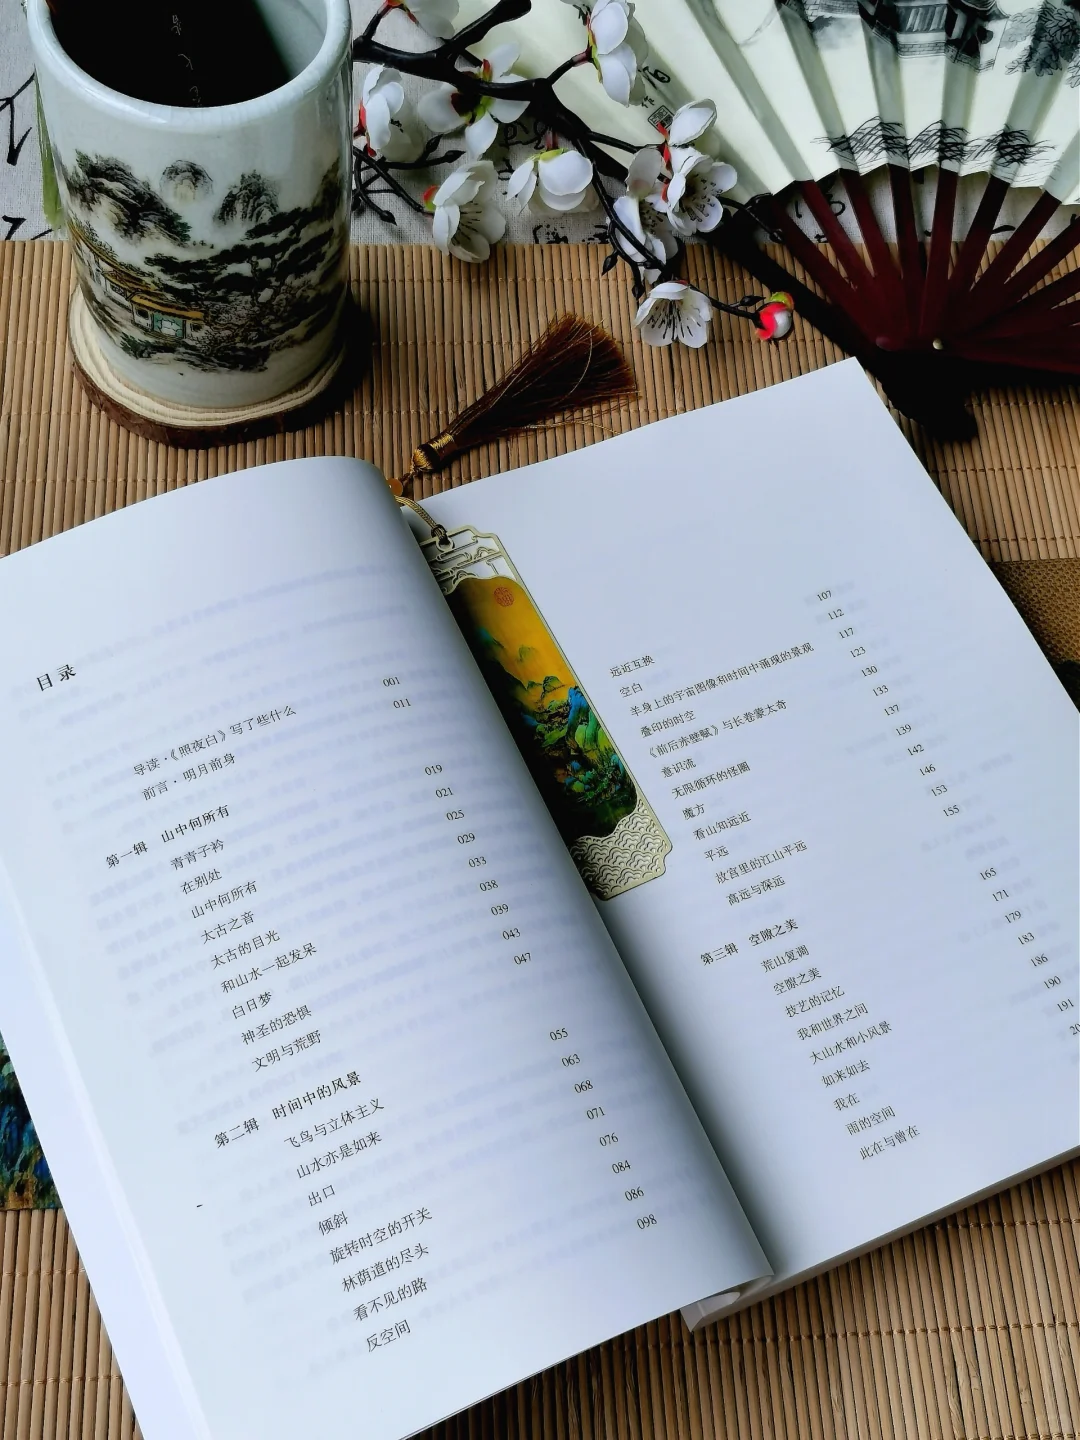 目录
导读·《照夜白》写了些什么 001
前言·明月前身 011
第一辑 山中何所有
青青子衿 019
在别处 021
山中何所有 025
太古之音 029
太古的目光 033
和山水一起发呆 038
白日梦 039
神圣的恐惧 043
文明与荒野 047
第二辑 时间中的风景
飞鸟与立体主义 055
山水亦是如来 063
出口 068
倾斜 071
旋转时空的开关 076
林荫道的尽头 084
看不见的路 086
反空间 098
远近互换 107
空白 112
羊身上的宇宙图像和时间中涌现的景观 117
叠印的时空 123
《前后赤壁赋》与长卷蒙太奇 130
意识流 133
无限循环的怪圈 137
魔方 139
看山知远近 142
平远 146
故宫里的江山平远 153
高远与深远 155
第三辑 空隙之美
荒山复调 165
空隙之美 171
技艺的记忆 179
我和世界之间 183
大山水和小风景 186
如来如去 190
我在 191
雨的空间
此在与曾在